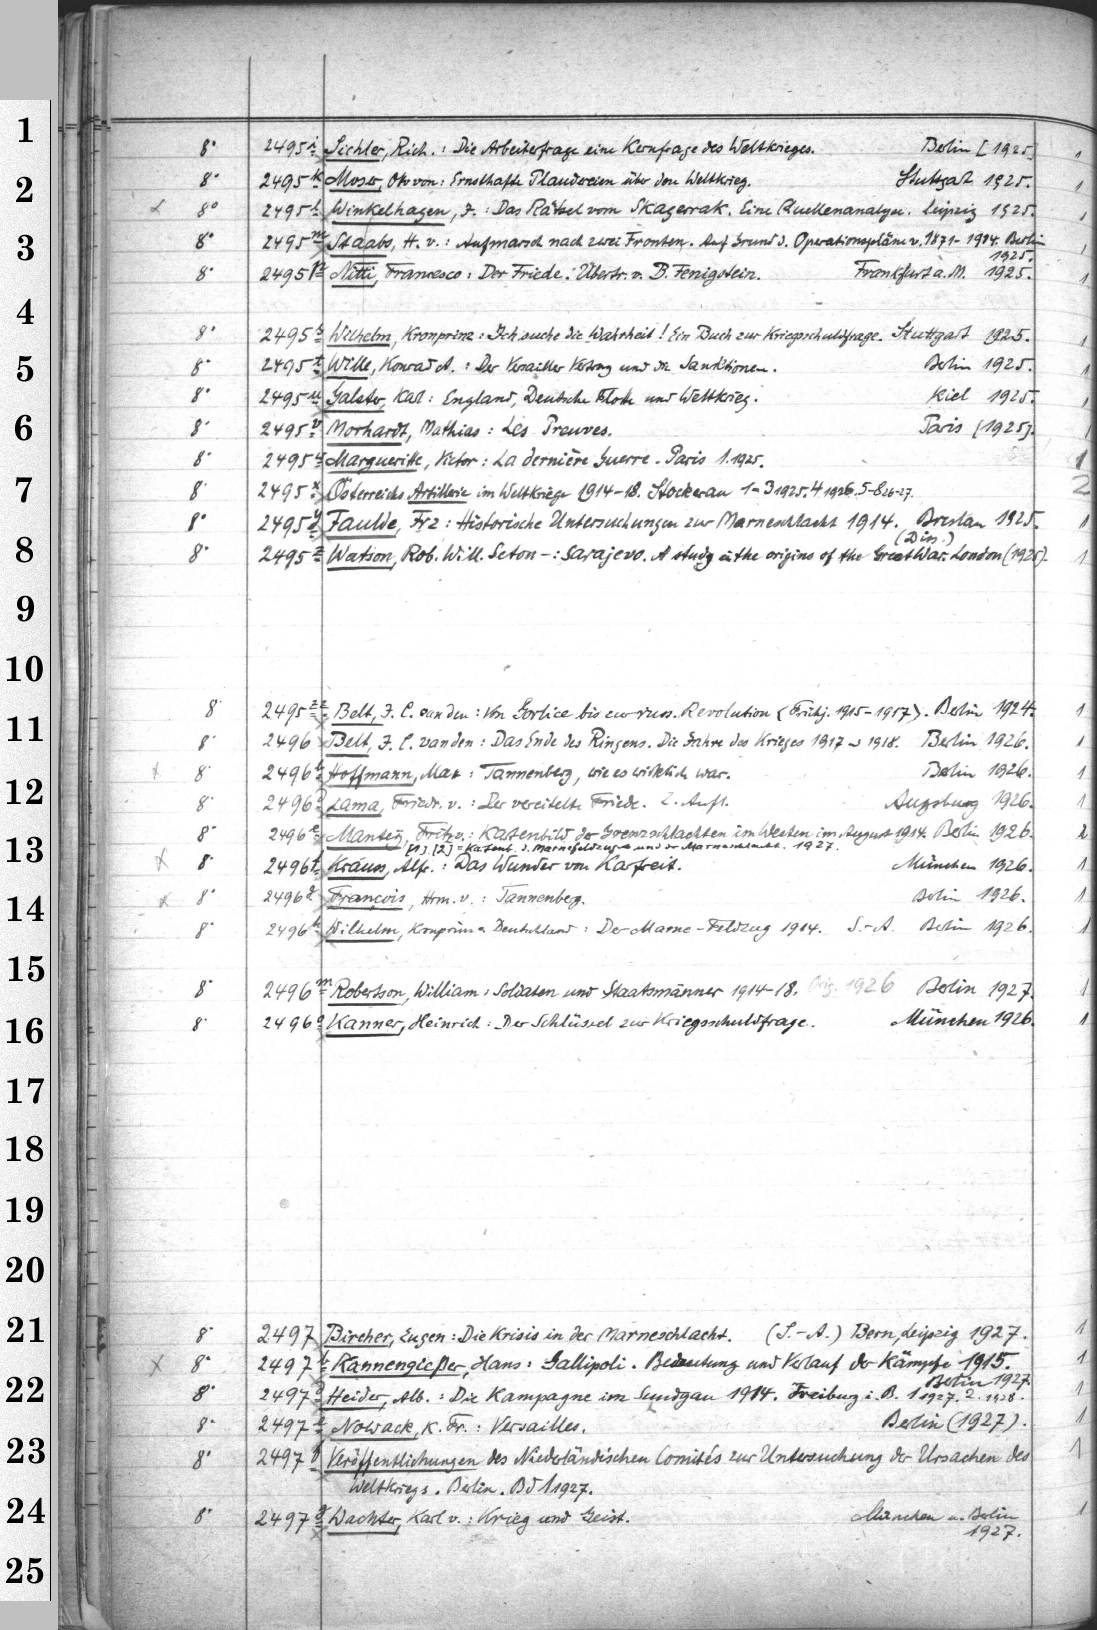 1
8° 2495 i Sichler, Rich.: Die Arbeiterfrage eine Kernfrage des Weltkrieges. Berlin [1925] 1
2
8° 2495 k Moser, Otto von: Ernsthafte Plaudereien über den Weltkrieg. Stuttgart 1925. 1
8° 2495 l Winkelhagen, J.: Das Rätsel vom Skagerrak. Eine Quellenanalyse. Leipzig 1925. 1
3
8° 2495 m Staabs, H. v.: Aufmarsch nach zwei Fronten. Auf Grund d. Operationspläne v. 1871-1914. Berlin
1925. 1
8° 2495 Nitti, Francesco: Der Friede. Übertr. v. B. Fenigstein. Frankfurt a. M. 1925. 1
4
8° 2495 s Wilhelm, Kronprinz: Ich suche die Wahrheit! Ein Buch zur Kriegsschuldfrage. Stuttgart 1925. 1
5
8° 2495 t Wille, Konrad A.: Der Versailler Vertrag und die Sanktionen. Berlin 1925. 1
8° 2495 u Galster, Karl: England, Deutsche Flotte und Weltkrieg. Kiel 1925. 1
6
8° 2495 v Morhardt, Mathias: Les Preuves. Paris (1925). 1
8° 2495 w Margueritte, Victor: La dernière Guerre. Paris 1.1925. 1
7
8° 2495 x Österreichs Artillerie im Weltkriege 1914-18. Stockerau 1-3 1925. 4 1926. 5-8 26-27. 2
8° 2495 y Faulde, Frz: Historische Untersuchungen zur Marneschlacht 1914. Breslau 1925. 1
(Diss.)
8
8° 2495 z Watson, Rob. Will. Seton-: Sarajevo. A study in the origins of the Great War. London (1925). 1
9
10
8° 2495 zz Belt, F. C. van den: Von Gorlice bis zur russ. Revolution (Frühj. 1915-1917). Berlin 1924. 1
11
8° 2496 Belt, F. C. van den: Das Ende des Ringens. Die Jahre des Krieges 1917 u 1918. Berlin 1926. 1
x 8° 2496 b Hoffmann, Max: Tannenberg, wie es wirklich war. Berlin 1926. 1
12
8° 2496 Lama, Friedr. v.: Der vereitelte Friede. 2. Aufl. Augsburg 1926. 1
8° 2496 e Mantey, Fritz v.: Kartenbild der Grenzschlachten im Westen im August 1914. Berlin 1926. 2
[1]. [2] = Kartenb. d. Marnefeldzuges und der Marneschlacht. 1927.
13
x 8° 2496 f Krauss, Alfr.: Das Wunder von Karfreit. München 1926. 1
x 8° 2496 g François, Hrm. v.: Tannenberg. Berlin 1926. 1
14
8° 2496 h Wilhelm, Kronprinz Deutschland: Der Marne-Feldzug 1914. S.-A. Berlin 1926. 1
15
8° 2496 m Robertson, William: Soldaten und Staatsmänner 1914-18. Orig. 1926 Berlin 1927. 1
16
8° 2496 o Kanner, Heinrich: Der Schlüssel zur Kriegsschuldfrage. München 1926. 1
17
18
19
20
21
8° 2497 Bircher, Eugen: Die Krisis in der Marneschlacht. (S.-A.) Bern, Leipzig 1927. 1
x 8° 2497 b Kannengießer, Hans: Gallipoli. Bedeutung und Verlauf der Kämpfe 1915. 1
Berlin 1927
22
8° 2497 Heider, Alb.: Die Kampagne im Sundgau 1914. Freiburg i. B. 1 1927. 2. 1928. 1
8° 2497 e Nowack, K. Fr.: Versailles. Berlin (1927). 1
23
8° 2497 Veröffentlichungen des Niederländischen Comités zur Untersuchung der Ursachen des 1
Weltkriegs. Berlin. Bd 1 1927.
24
8° 2497 g Wachter, Karl v.: Krieg und Geist. München u. Berlin 1
1927.
25